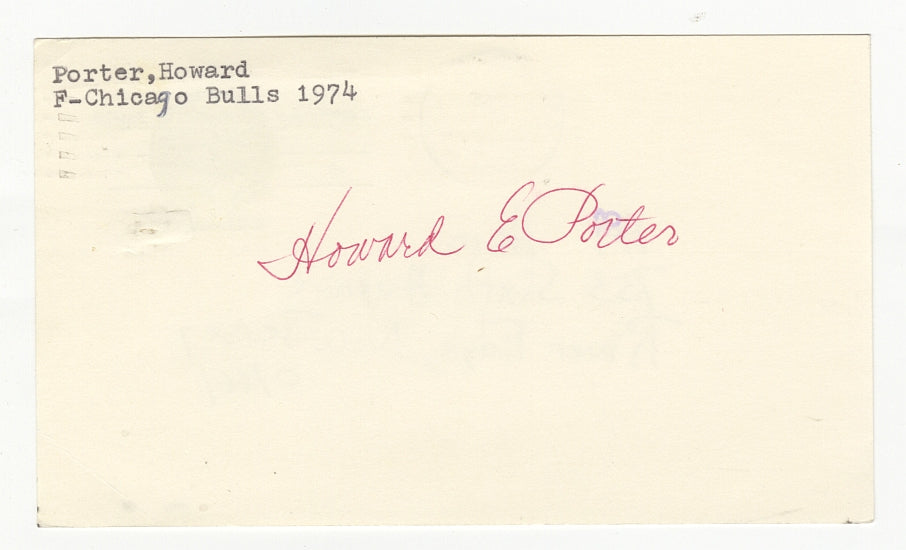 Porter,Howard
F-Chicago Bulls 1974
Howard E Porter